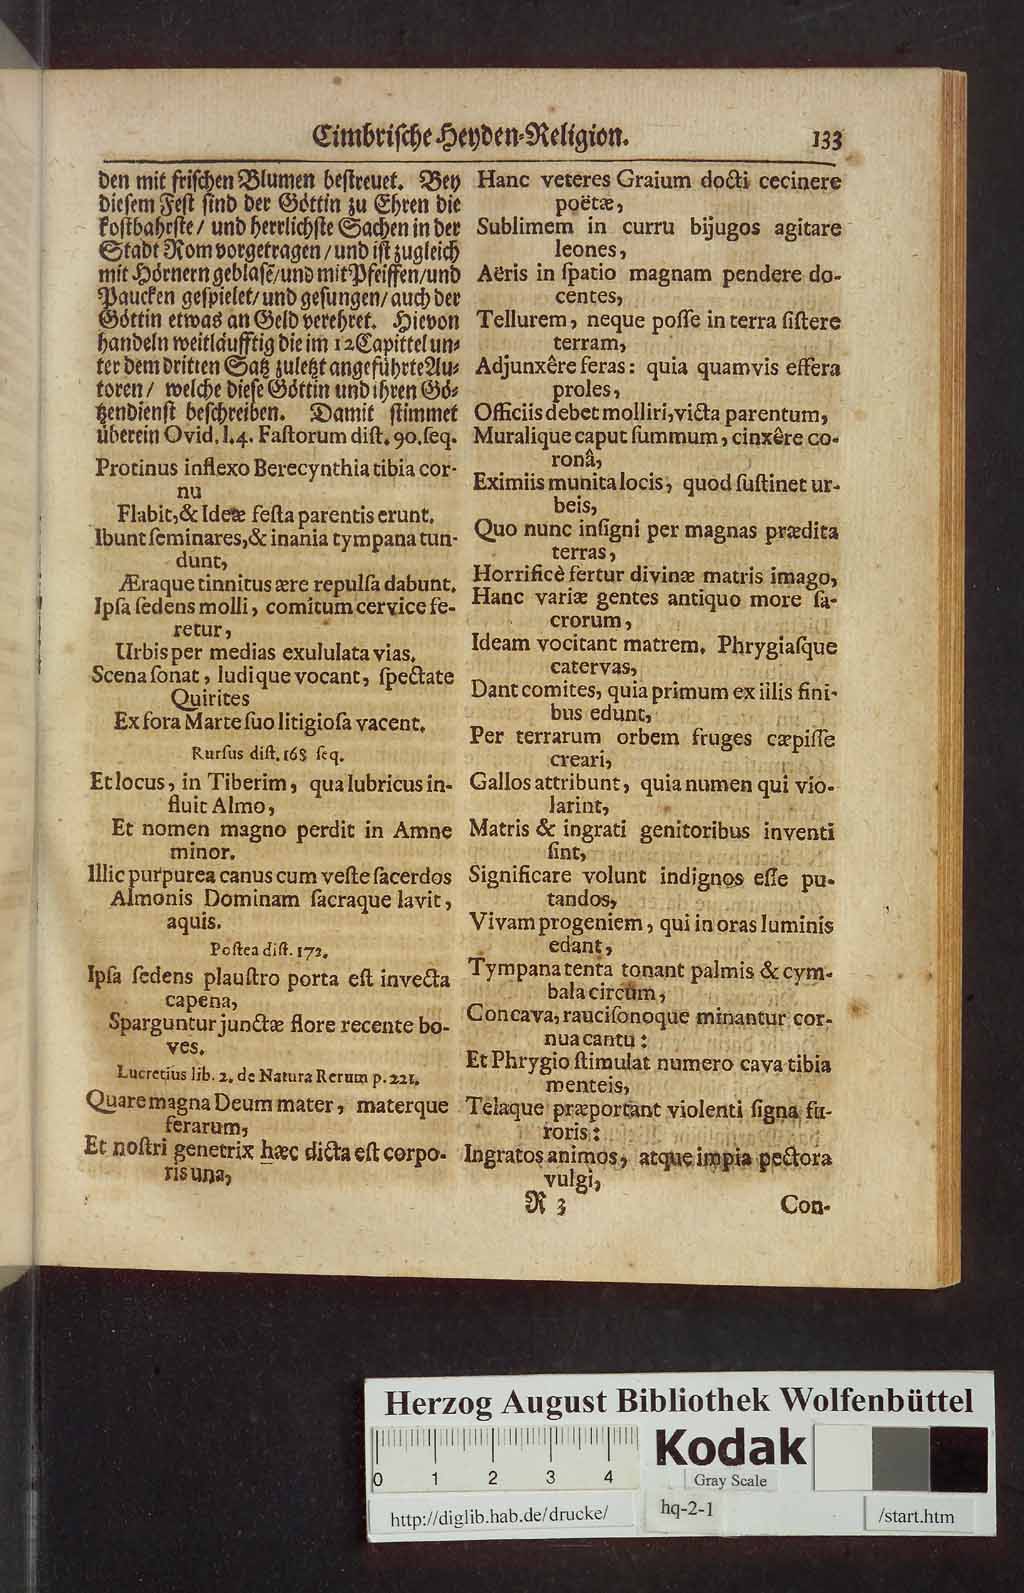 Cimbrische Heyden-Religion. 133
den mit frischen Blumen bestreuet. Bey
diesem Fest sind der Göttin zu Ehren die
kostbahrste/ und herrlichste Sachen in der
Stadt Rom vorgetragen/ und ist zugleich
mit Hörnern geblase/ und mit Pfeiffen/ und
Paucken gespielet/ und gesungen/ auch der
Göttin etwas an Geld verehret. Hievon
handeln weitläufftig die im 12 Capittel un-
ter dem dritten Satz zuletzt angeführte Au-
toren/ welche diese Göttin und ihren Gö-
tzendienst beschreiben. Damit stimmet
überein Ovid. l. 4. Fastorum dist. 90. seq.
Protinus inflexo Berecynthia tibia cor-
nu
Flabit, & Ideæ festa parentis erunt.
Ibunt seminares, & inania tympana tun-
dunt,
Æraque tinnitus ære repulsa dabunt.
Ipsa sedens molli, comitum cervice fe-
retur,
Urbis per medias exululata vias.
Scena sonat, ludique vocant, spectate
Quirites
Ex fora Marte suo litigiosa vacent.
Rursus dist. 168 seq.
Et locus, in Tiberim, qua lubricus in-
fluit Almo,
Et nomen magno perdit in Amne
minor.
Illic purpurea canus cum veste sacerdos
Almonis Dominam sacraque lavit,
aquis.
Postea dist. 172.
Ipsa sedens plaustro porta est invecta
capena,
Sparguntur junctæ flore recente bo-
ves.
Lucretius lib. 2. de Natura Rerum p. 221.
Quare magna Deum mater, materque
ferarum,
Et nostri genetrix hæc dicta est corpo-
ris una,
Hanc veteres Graium docti cecinere
poëtæ,
Sublimem in curru bijugos agitare
leones,
Aëris in spatio magnam pendere do-
centes,
Tellurem, neque posse in terra sistere
terram,
Adjunxêre feras: quia quamvis effera
proles,
Officiis debet molliri, victa parentum,
Muralique caput summum, cinxêre co-
ronâ,
Eximiis munita locis, quod sustinet ur-
beis,
Quo nunc insigni per magnas prædita
terras,
Horrificè fertur divinæ matris imago,
Hanc variæ gentes antiquo more sa-
crorum,
Ideam vocitant matrem. Phrygiasque
catervas,
Dant comites, quia primum ex iilis fini-
bus edunt,
Per terrarum orbem fruges cæpisse
creari,
Gallos attribunt, quia numen qui vio-
larint,
Matris & ingrati genitoribus inventi
sint,
Significare volunt indignos esse pu-
tandos,
Vivam progeniem, qui in oras luminis
edant,
Tympana tenta tonant palmis & cym-
bala circum,
Concava, raucisonoque minantur cor-
nua cantu:
Et Phrygio stimulat numero cava tibia
menteis,
Telaque præportant violenti signa fu-
roris:
Ingratos animos, atque impia pectora
vulgi,
R 3 Con-
Herzog August Bibliothek Wolfenbüttel
0 1 2 3 4
Kodak
Gray Scale
http://diglib.hab.de/drucke/
hq-2-1
/start.htm